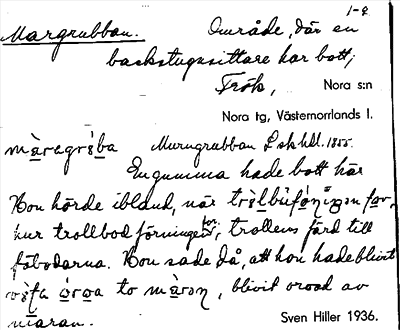 1-2
Margrubban. Område, där en
backstugusittare har bott,
Frök, Nora s:n
Nora tg, Västernorrlands l.
màragrùba Murugrubban L sk hdl. 1855.
En gumma hade bott här
Hon hörde ibland, när
hur trollbod förningen for, trollens färd till
fäbodarna. Hon sade då, att hon hade blivit
to màran, blivit oroad av
maran. Sven Hiller 1936.